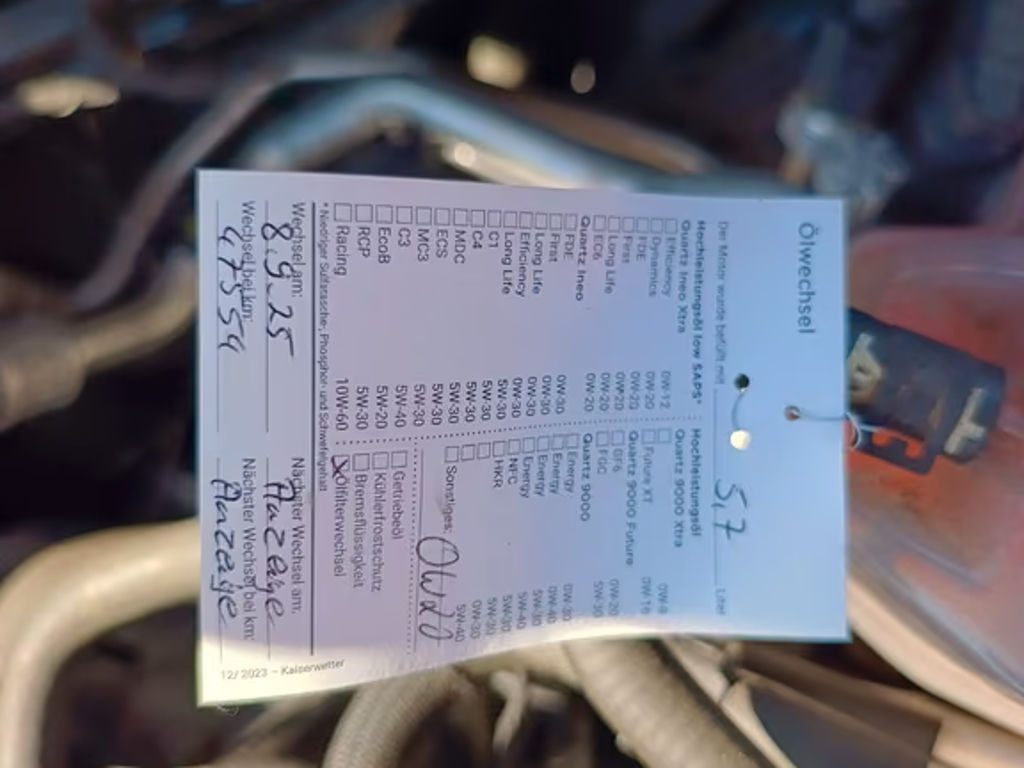 Ölwechsel
Der Motor wurde befüllt mit 5,7 Liter
Hochleistungsöl low SAPS*
Quartz Ineo Xtra
Efficiency 0W-12
Dynamics 0W-20
FDE 0W-20
First 0W-20
Long Life 0W-20
EC6 0W-20
Quartz Ineo
FDE 0W-30
First 0W-30
Long Life 0W-30
Efficiency 0W-30
Long Life 5W-30
C1 5W-30
C4 5W-30
MDC 5W-30
ECS 5W-30
MC3 5W-30
C3 5W-40
EcoB 5W-20
RCP 5W-30
Racing 10W-60
Hochleistungsöl
Quartz 9000 Xtra
0W-8
Future XT 0W-16
Quartz 9000 Future
GF6 0W-20
FGC 5W-30
Quartz 9000
Energy 0W-30
Energy 0W-40
Energy 5W-30
Energy 5W-40
NFC 5W-30
HKR 5W-30
0W-30
5W-40
Sonstiges: 0W20
Getriebeöl
Kühlerfrostschutz
Bremsflüssigkeit
Ölfilterwechsel
* Niedriger Sulfatasche-, Phosphor- und Schwefelgehalt
Wechsel am: Nächster Wechsel am:
8.9.25 Anzeige
Wechsel bei km: Nächster Wechsel bei km:
47554 Anzeige
12/2023 – Kaiserwetter